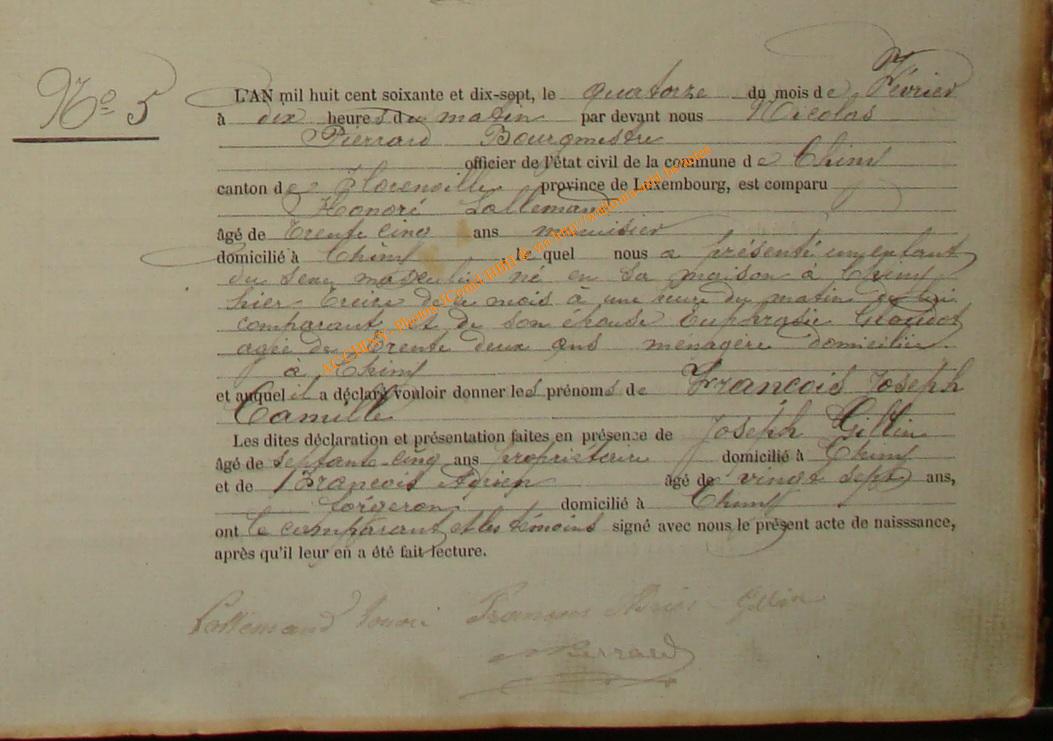 N° 5
L'AN mil huit cent soixante et dix-sept, le quatorze du mois de Février
à dix heures du matin par devant nous Nicolas
Pierrard Bourgmestre
officier de l'état civil de la commune de Chiny
canton de Florenville province de Luxembourg, est comparu
Honoré Lallemand
âgé de trente cinq ans menuisier
domicilié à Chiny, lequel nous a présenté un enfant
du sexe masculin né en sa maison à Chiny
hier treize de ce mois à une heure du matin de lui
comparant et de son épouse Euphrasie
agée de trente deux ans ménagère domiciliée
à Chiny
et auquel il a déclaré vouloir donner les prénoms de François Joseph
Camille
Les dites déclaration et présentation faites en présence de Joseph Gillin
âgé de septante-cinq ans propriétaire domicilié à Chiny
et de François âgé de vingt sept ans,
forgeron domicilié à Chiny
ont le comparant et les témoins signé avec nous le présent acte de naisssance,
après qu'il leur en a été fait lecture.
Lallemand honoré François Gillin
Pierrard